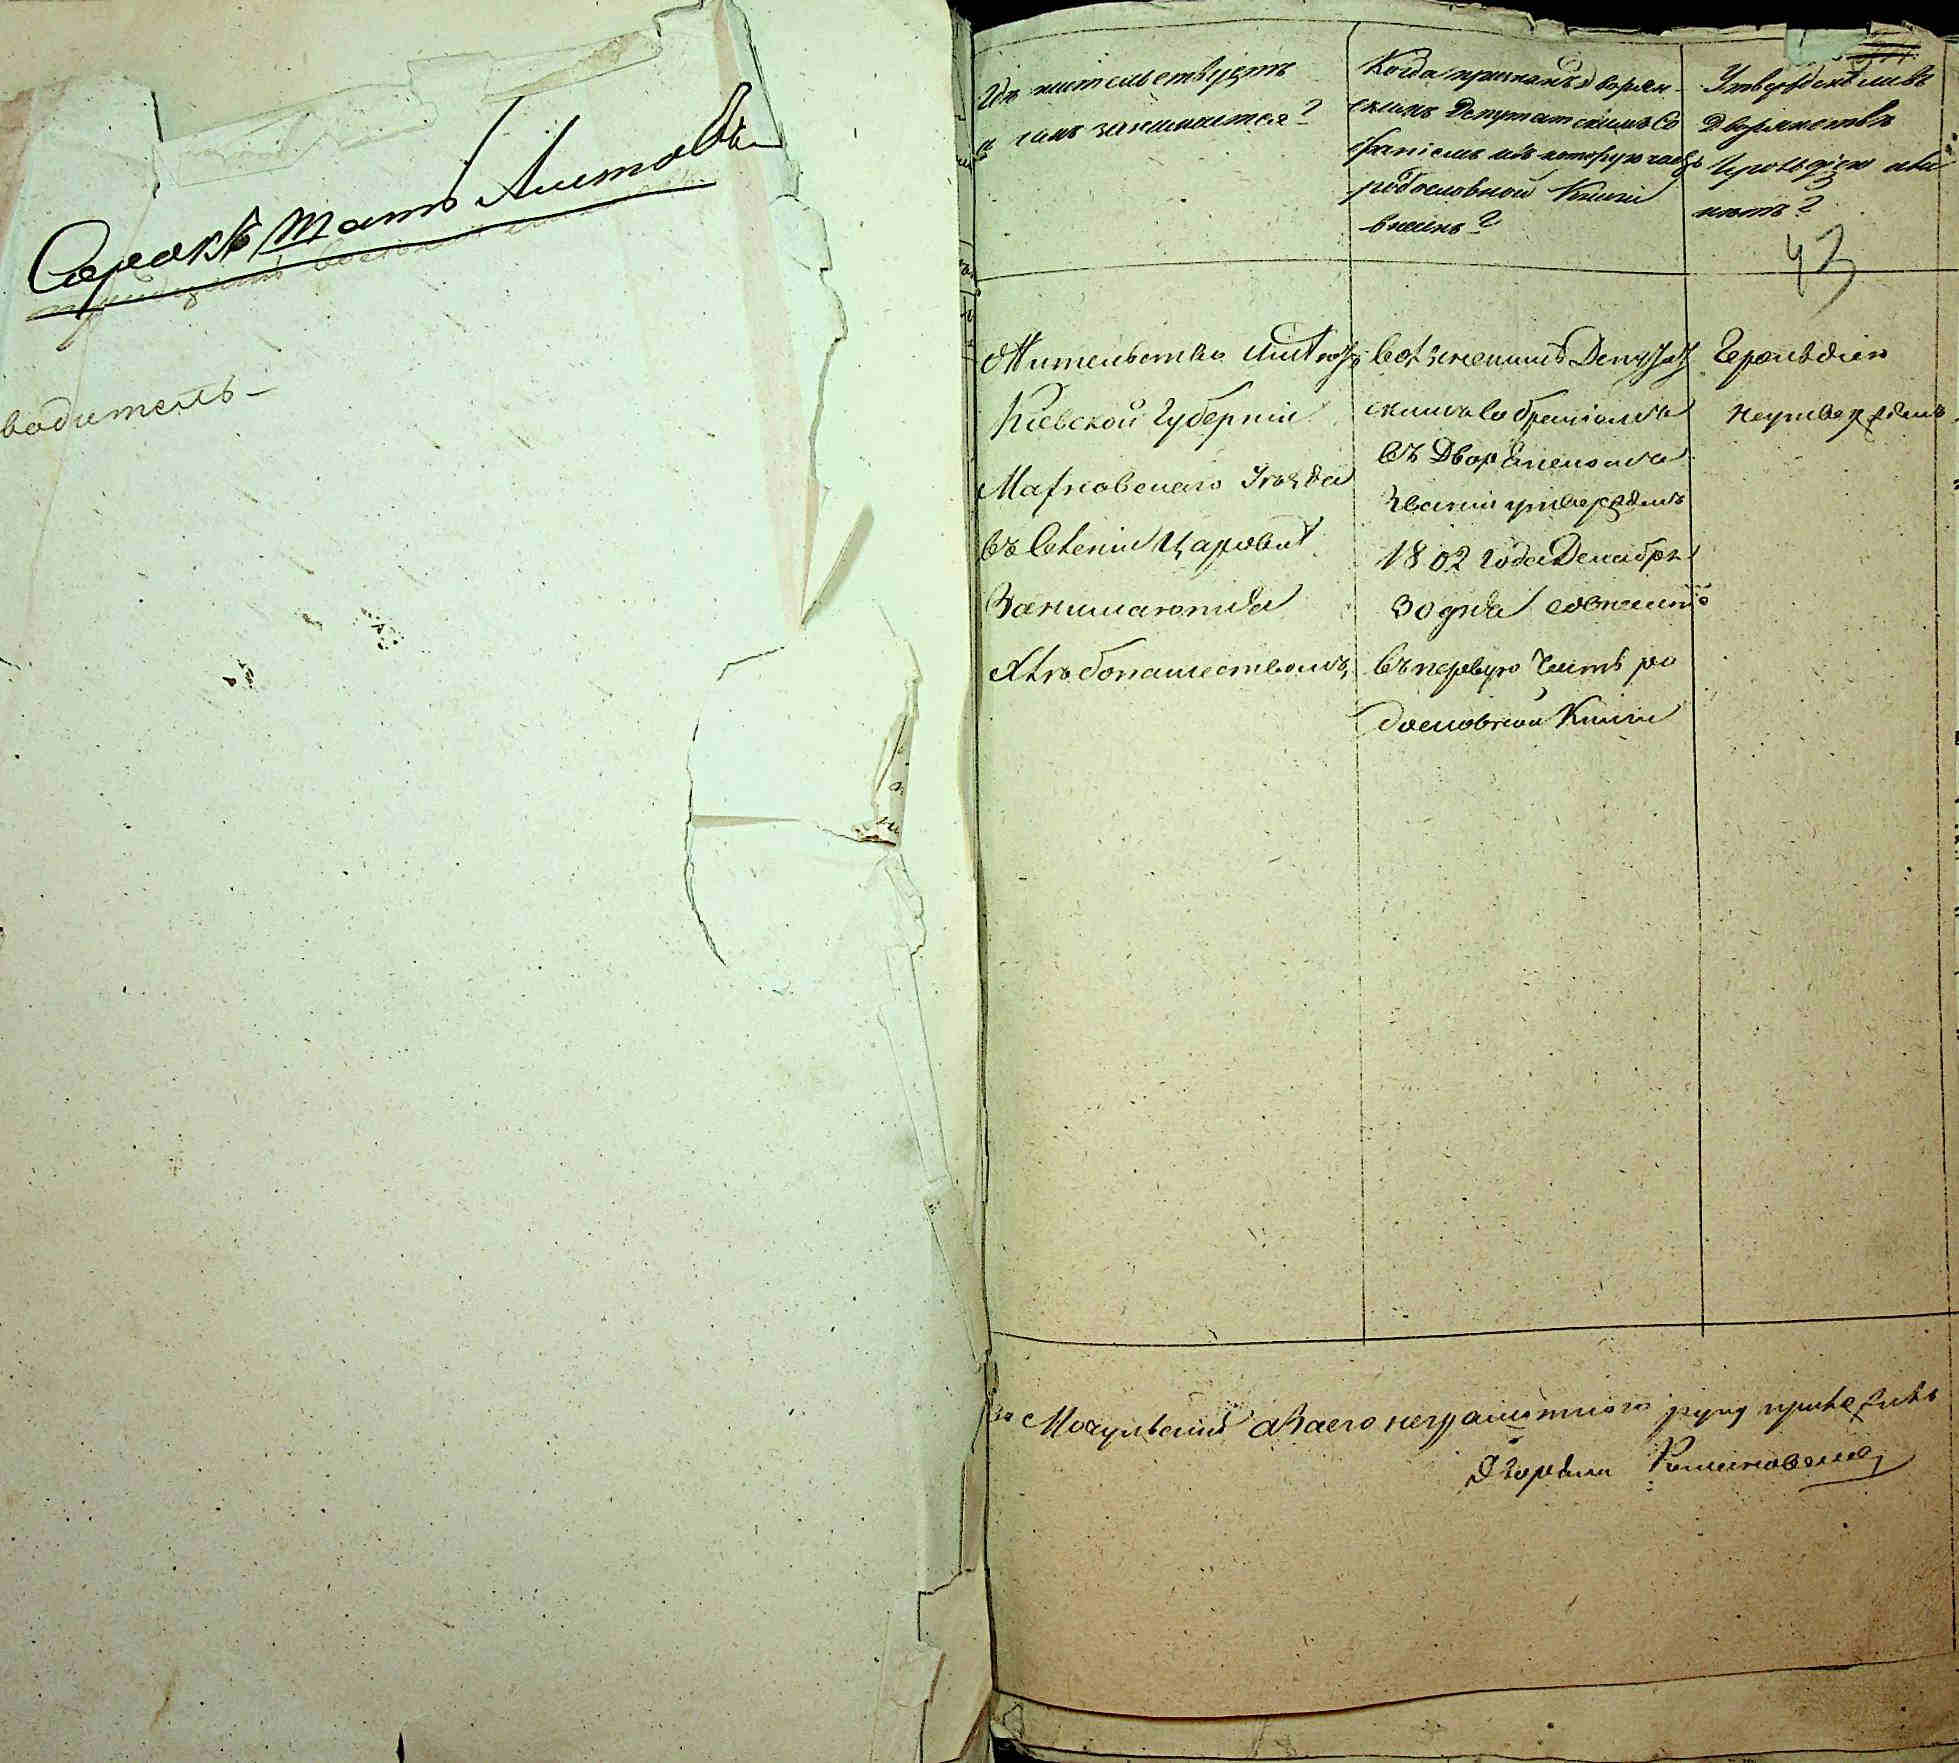 Сорокъ шать листовъ
водитель
Гдѣ жительствуетъ
и чемъ занимается?
Когда признанъ дворян-
скимъ Депутатскимъ Со
браніемъ и въ которую часть
родословной Книги
внесенъ?
Утвержденъ ли въ
дворянствѣ
Герольдіею или
нѣтъ?
43
Жительство имѣютъ
Кіевской Губерніи
Махновскаго Уѣзда
въ Селеніи
Занимаются
Хлѣбопашествомъ,
Волынскимъ Депутат
скимъ Собраніемъ
въ Дворянскомъ
Званіи утвержденъ
1802 года Декабря
30 дня со внесеніемъ
въ первую Часть ро
дословной Книги
Герольдіею
неутвержденъ
Мочульскій а за его неграмотного руку приложилъ
Дворянинъ